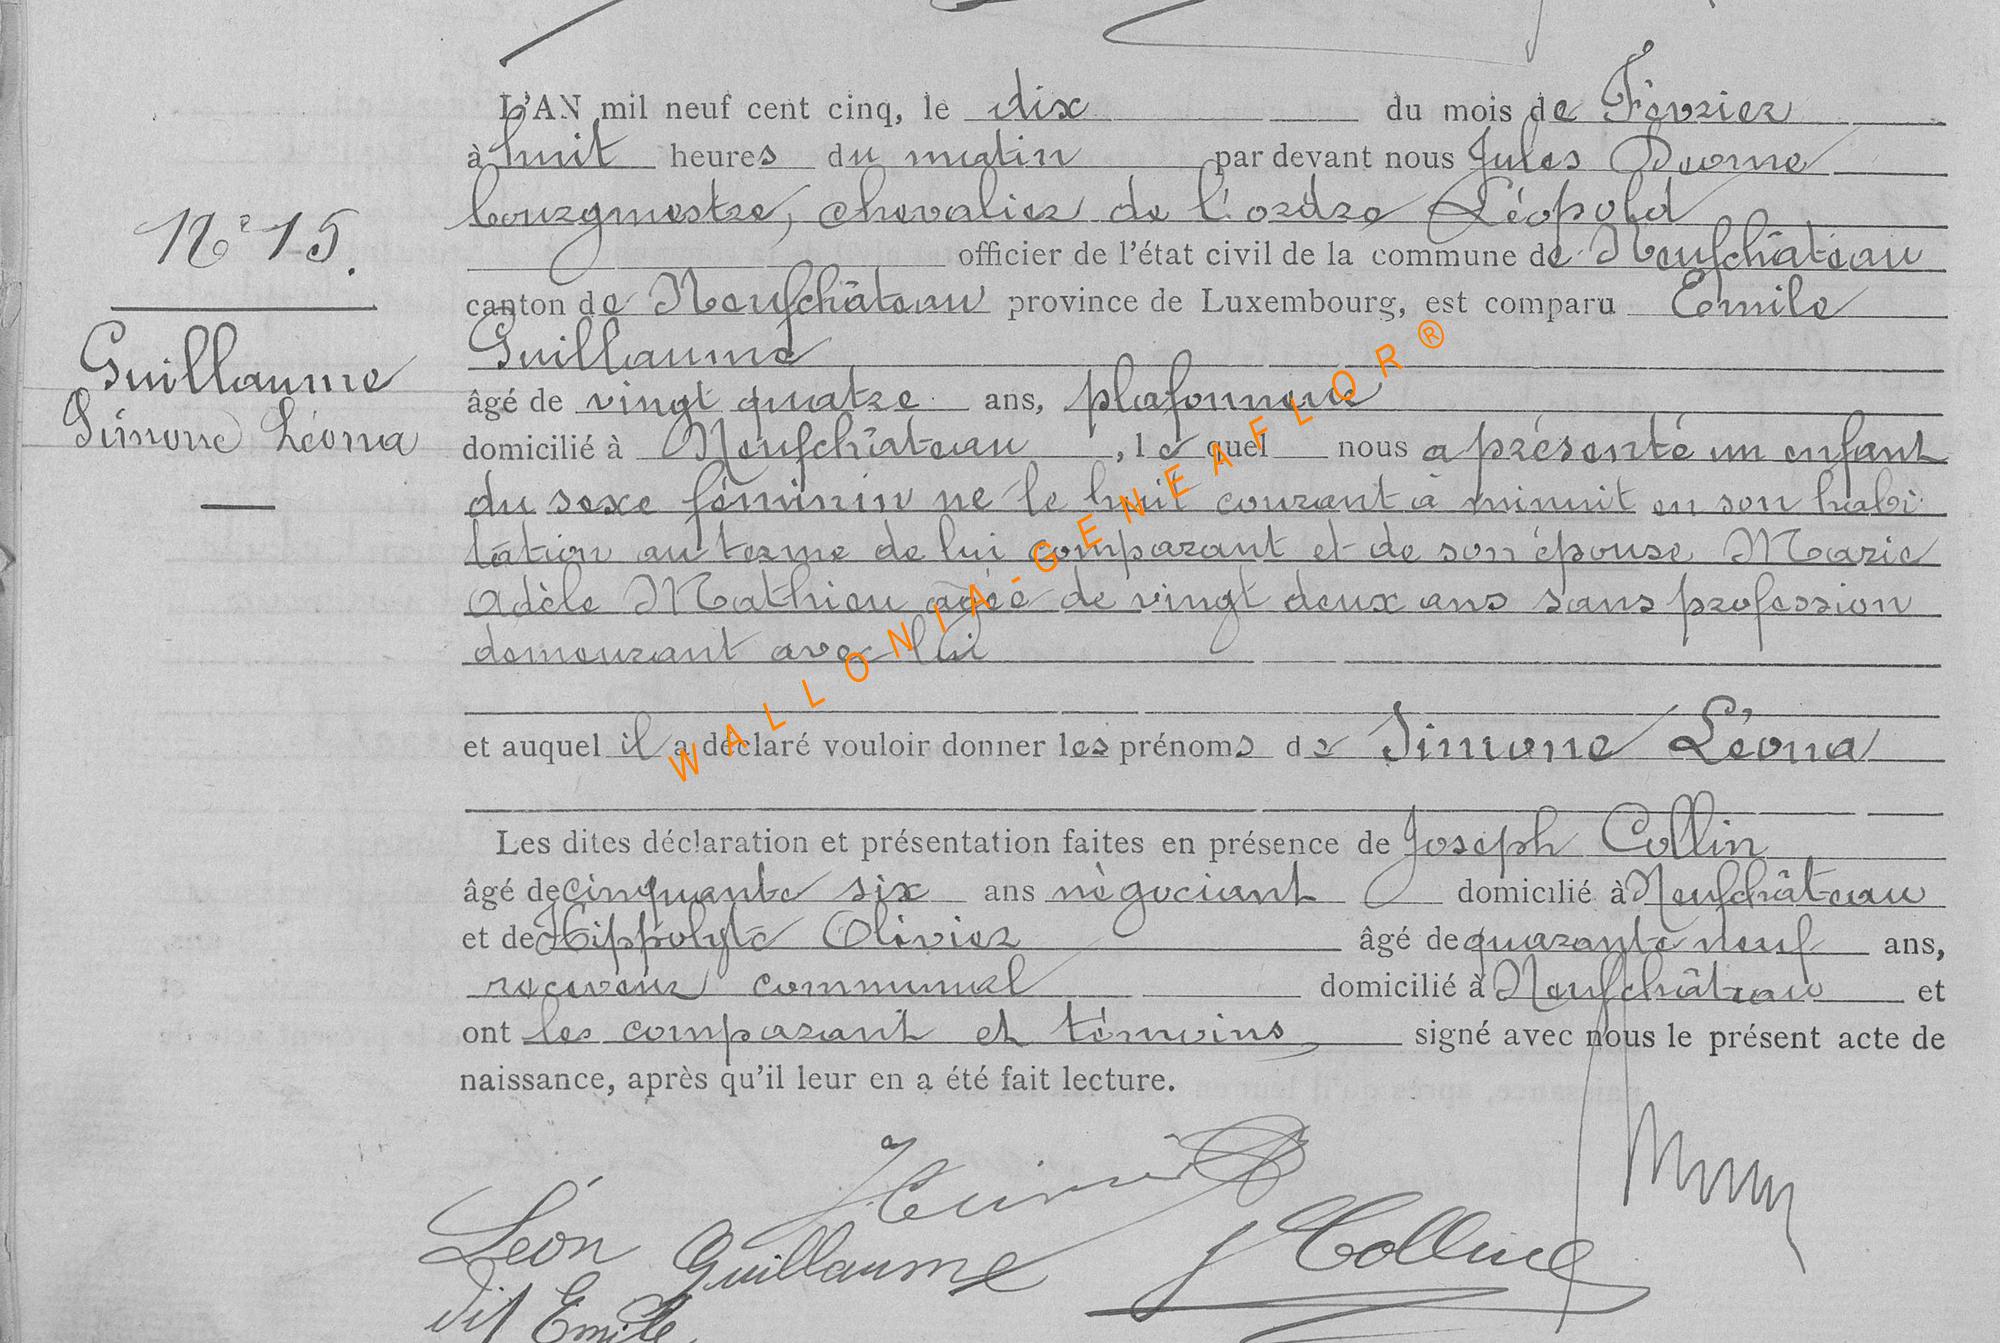 L'AN mil neuf cent cinq, le dix du mois de Février
à huit heures du matin par devant nous Jules
bourgmestre, chevalier de l'ordre Léopold
N° 15.
officier de l'état civil de la commune de Neufchâteau
canton de Neufchâteau province de Luxembourg, est comparu Emile
Guillaume
Guillaume
âgé de vingt quatre ans, plafonneur
Simone Léona
domicilié à Neufchâteau, le quel nous a présenté un enfant
du sexe féminin né le huit courant à minuit en son habi
tation au terme de lui comparant et de son épouse Marie
Adèle Mathieu agée de vingt deux ans sans profession
demeurant avec lui
et auquel il a déclaré vouloir donner les prénoms de Simone Léona
Les dites déclaration et présentation faites en présence de Joseph Collin
âgé de cinquante six ans négociant domicilié à Neufchâteau
et de Hippolyte Olivier âgé de quarante neuf ans,
receveur communal domicilié à Neufchâteau et
ont les comparant et témoins signé avec nous le présent acte de
naissance, après qu'il leur en a été fait lecture.
Léon Guillaume J Collin
dit Emile
WALLONIA-GENEAFLOR®